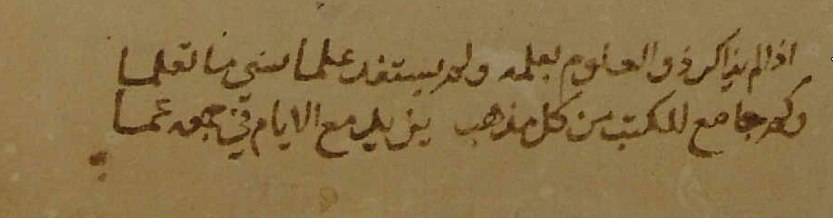 اذا لم يذاكر ذو العلوم بعلمه ولم يستفد علما نسي ما تعلما
وكم جامع للكتب من كل مذهب يزيد مع الايام في جمعه عما